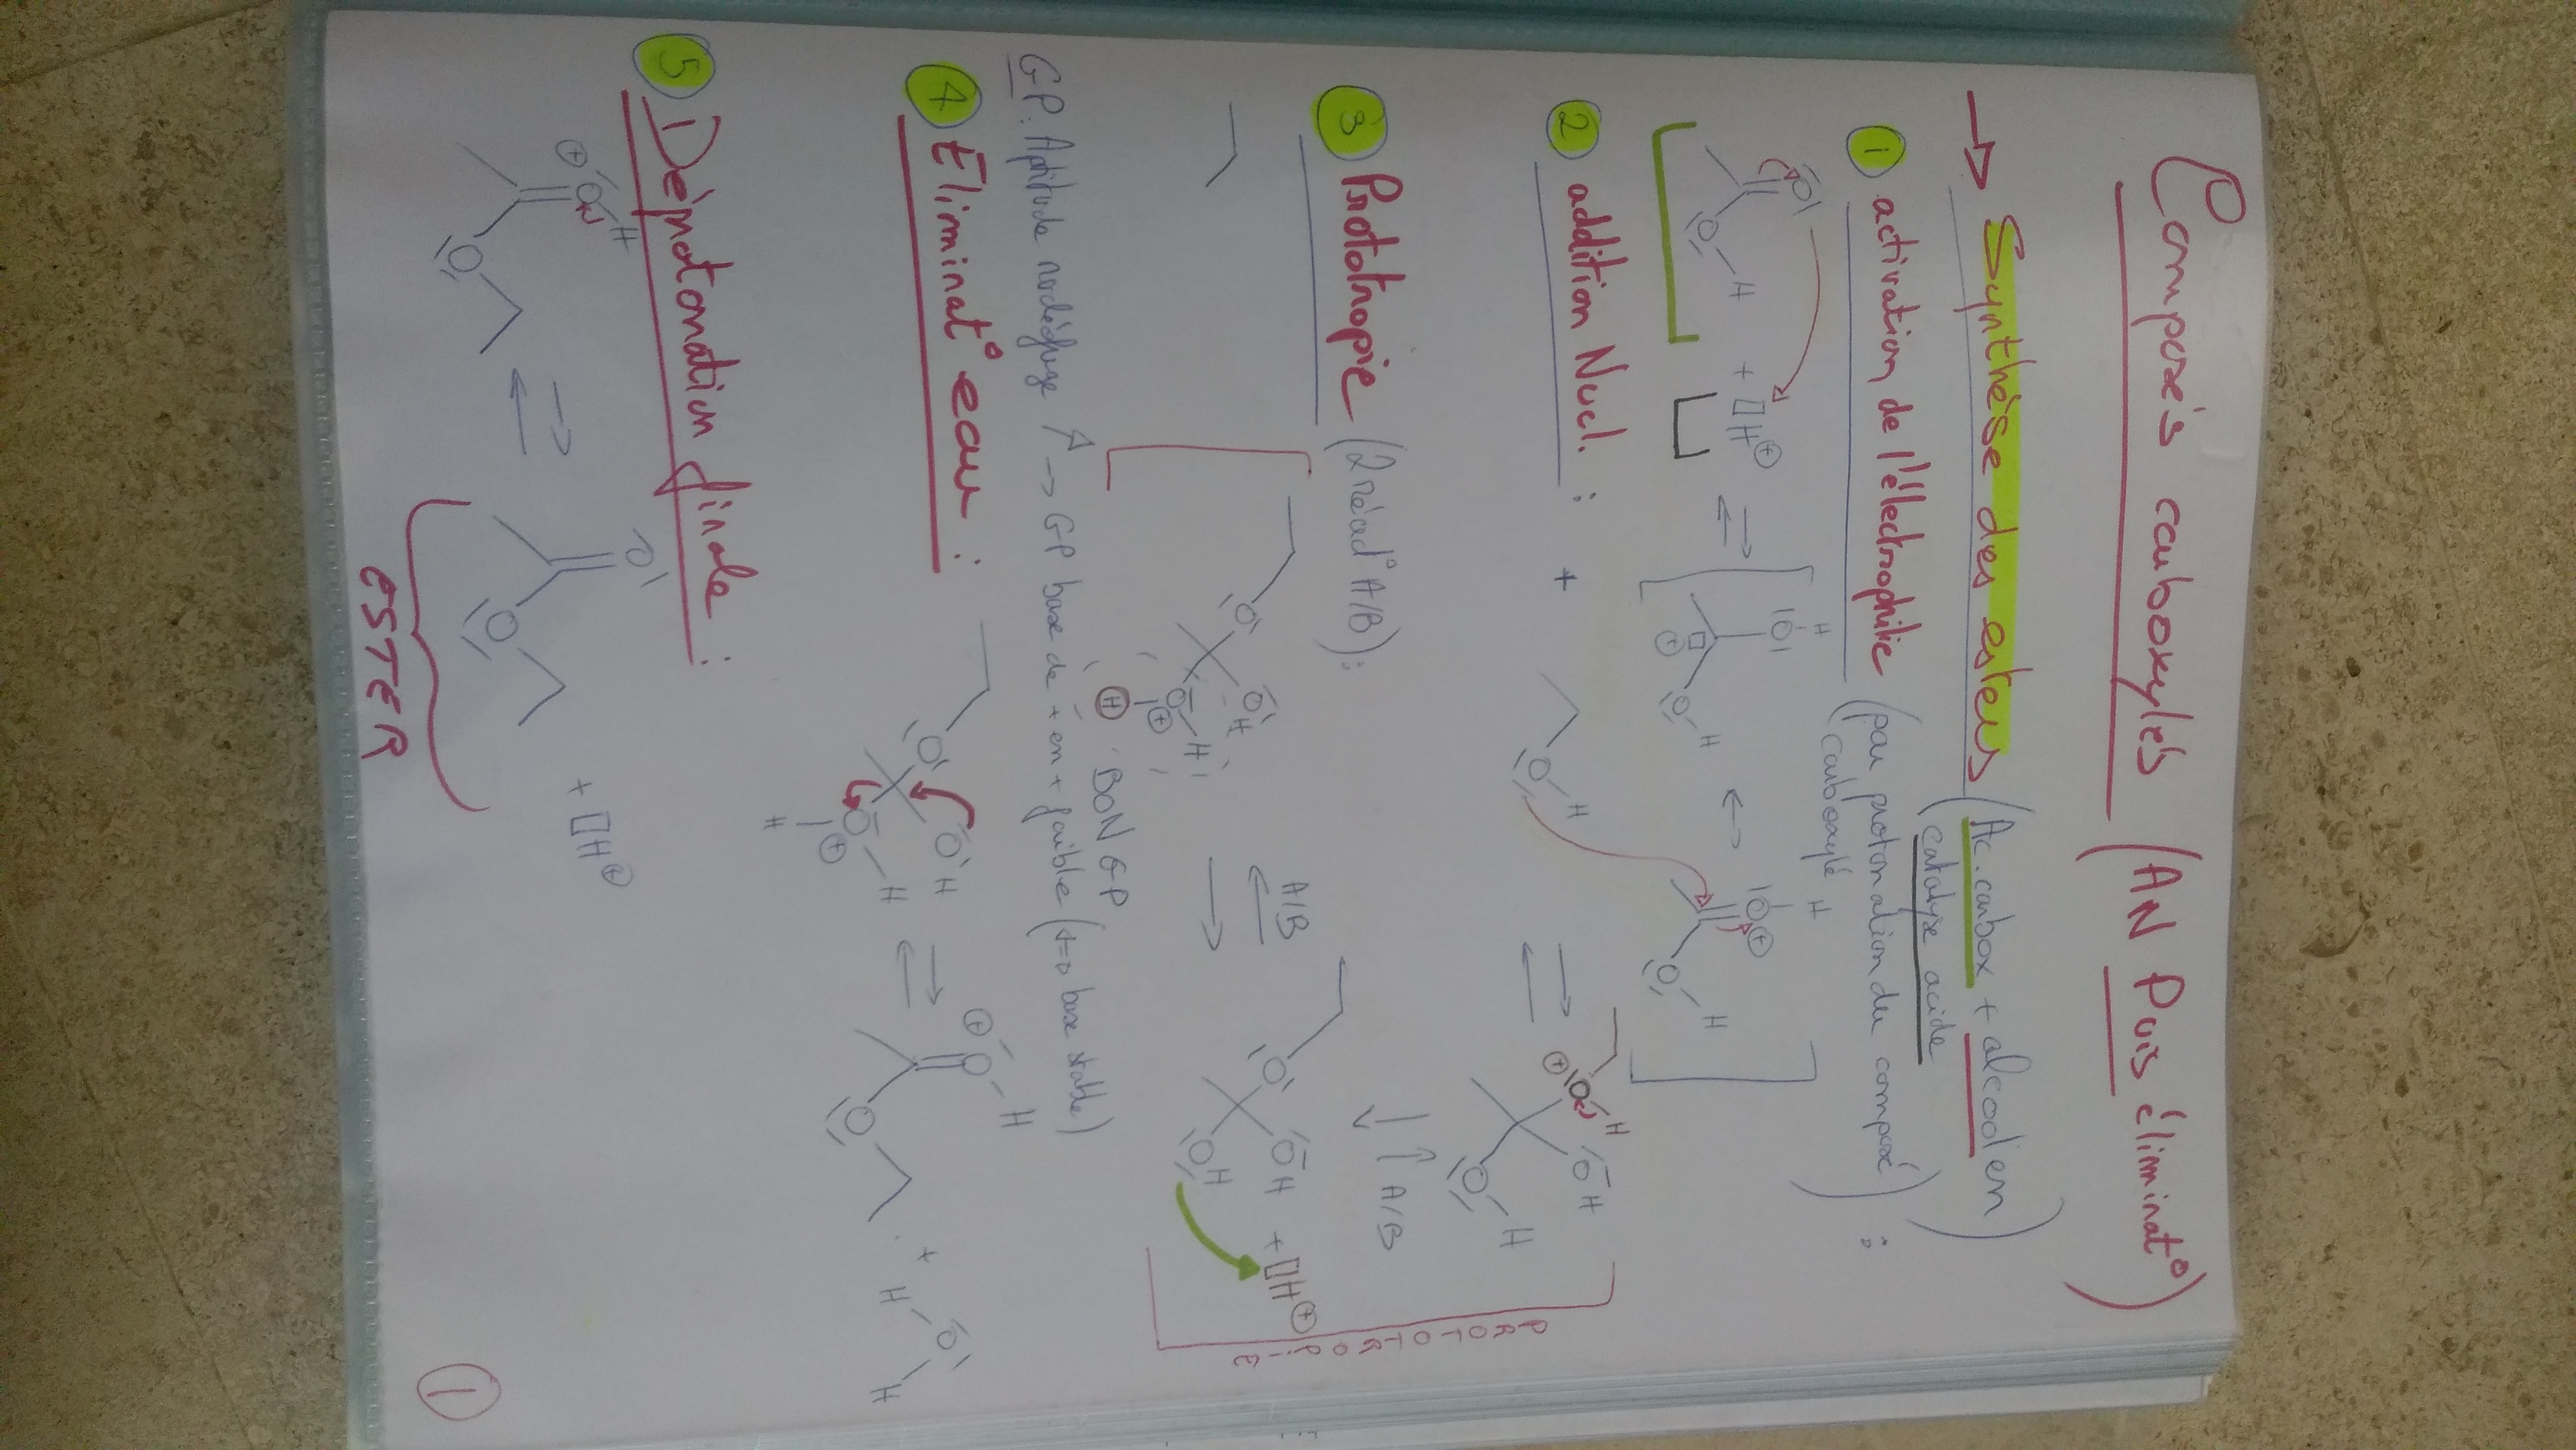 Composés carboxylés (AN Puis éliminat°)
→ Synthèse des esters (Ac. carbox + alcool en
catalyse acide)
① activation de l'électrophilie (par protonation du composé
carboxylé) :
+ □H⊕ ⇌ ↔
② addition Nucl. :
+ ⇌
③ Prototropie (2 réact° A/B) :
A/B
A/B
+ □H⊕
PROTOTROPIE
BON GP
GP : Aptitude nucléofuge ↗ → GP base de + en + faible (↔ base stable)
④ Eliminat° eau :
⇌ +
⑤ Déprotonation finale :
⇌ + □H⊕
ESTER
①